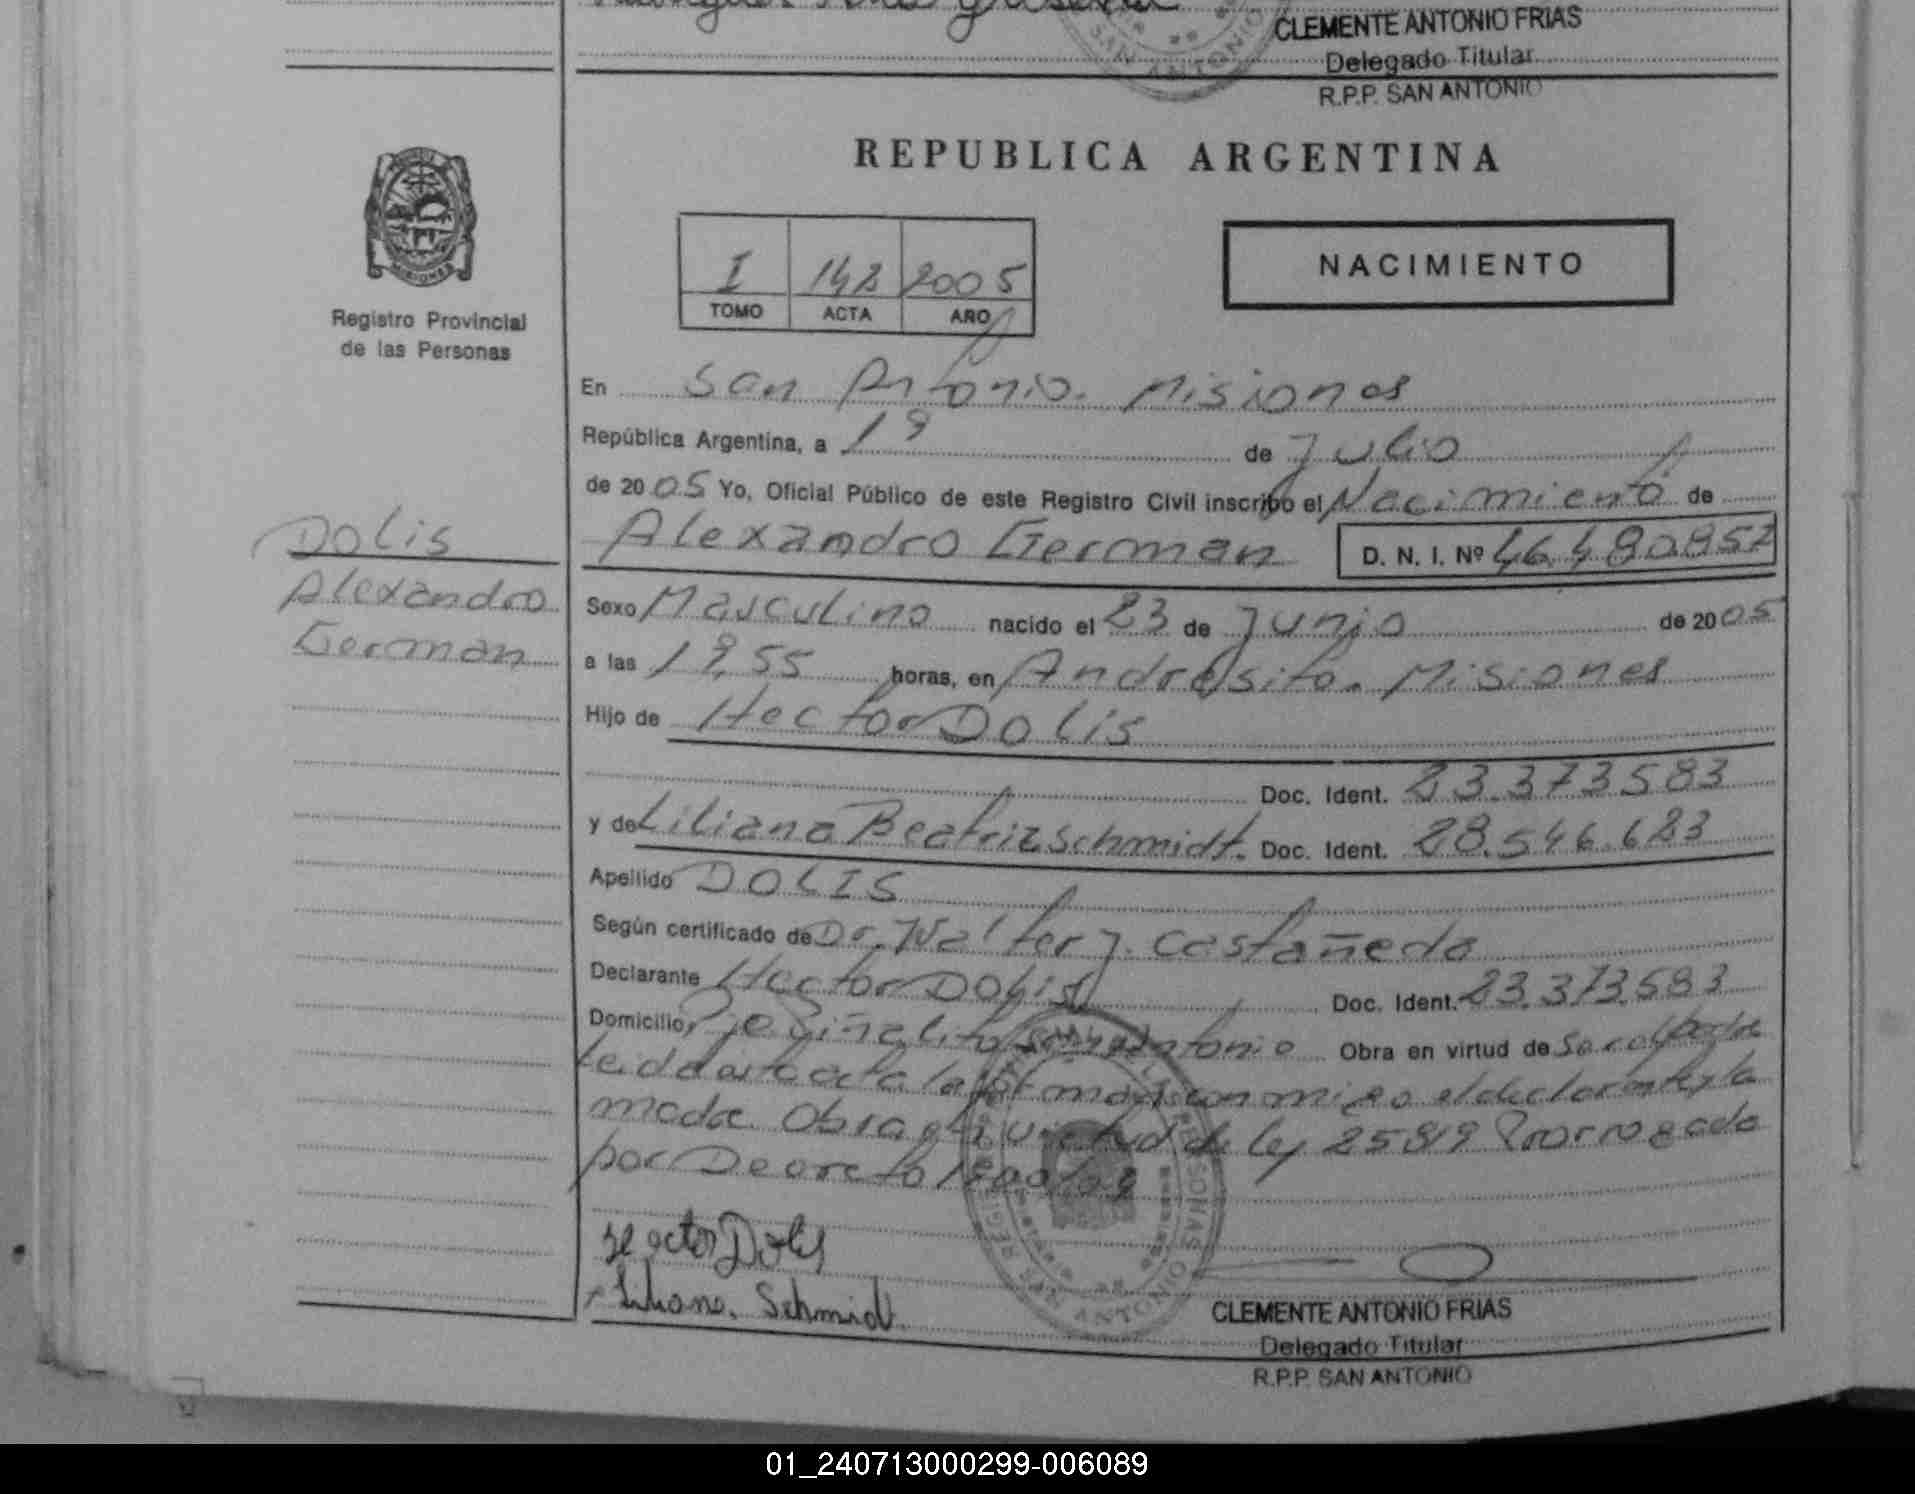 CLEMENTE ANTONIO FRIAS
Delegado Titular
R.P.P. SAN ANTONIO
SAN ANTONIO
REPUBLICA ARGENTINA
MISIONES
Registro Provincial
de las Personas
I 142 2005
TOMO ACTA AÑO
NACIMIENTO
En San Antonio. Misiones
República Argentina, a 19 de Julio
de 2005 Yo, Oficial Público de este Registro Civil inscribo el Nacimiento de
Dolis
Alexandro German
Alexandro German D. N. I. Nº 46.480.857
Sexo Masculino nacido el 23 de Junio de 2005
a las 19,55 horas, en Andresito. Misiones
Hijo de Hector Dolis
Doc. Ident. 23.373583
y de Liliana Beatriz Schmidt. Doc. Ident. 28.546.623
Apellido DOLIS
Según certificado de Dr. Walter J. Castañeda
Declarante Hector Dolis Doc. Ident. 23.373583
Domicilio Piñalito San Antonio Obra en virtud de
Leida esta acta la firman conmigo el declarante y la
madre Obra en virtud de ley 25819 Prorrogado
por Decreto
Hector Dolis
Liliana. Schmidt
SAN ANTONIO
CLEMENTE ANTONIO FRIAS
Delegado Titular
R.P.P. SAN ANTONIO
01_240713000299-006089